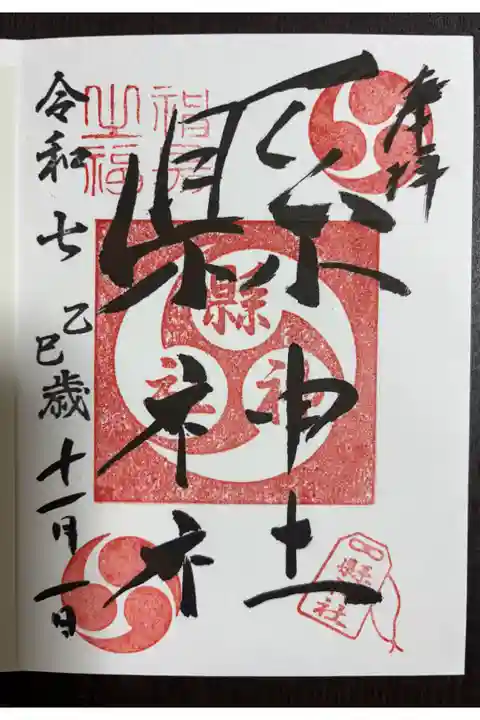 奉拝
縣
神
社
令和七 乙巳歳 十一月一日
之福
縣神社
縣神社